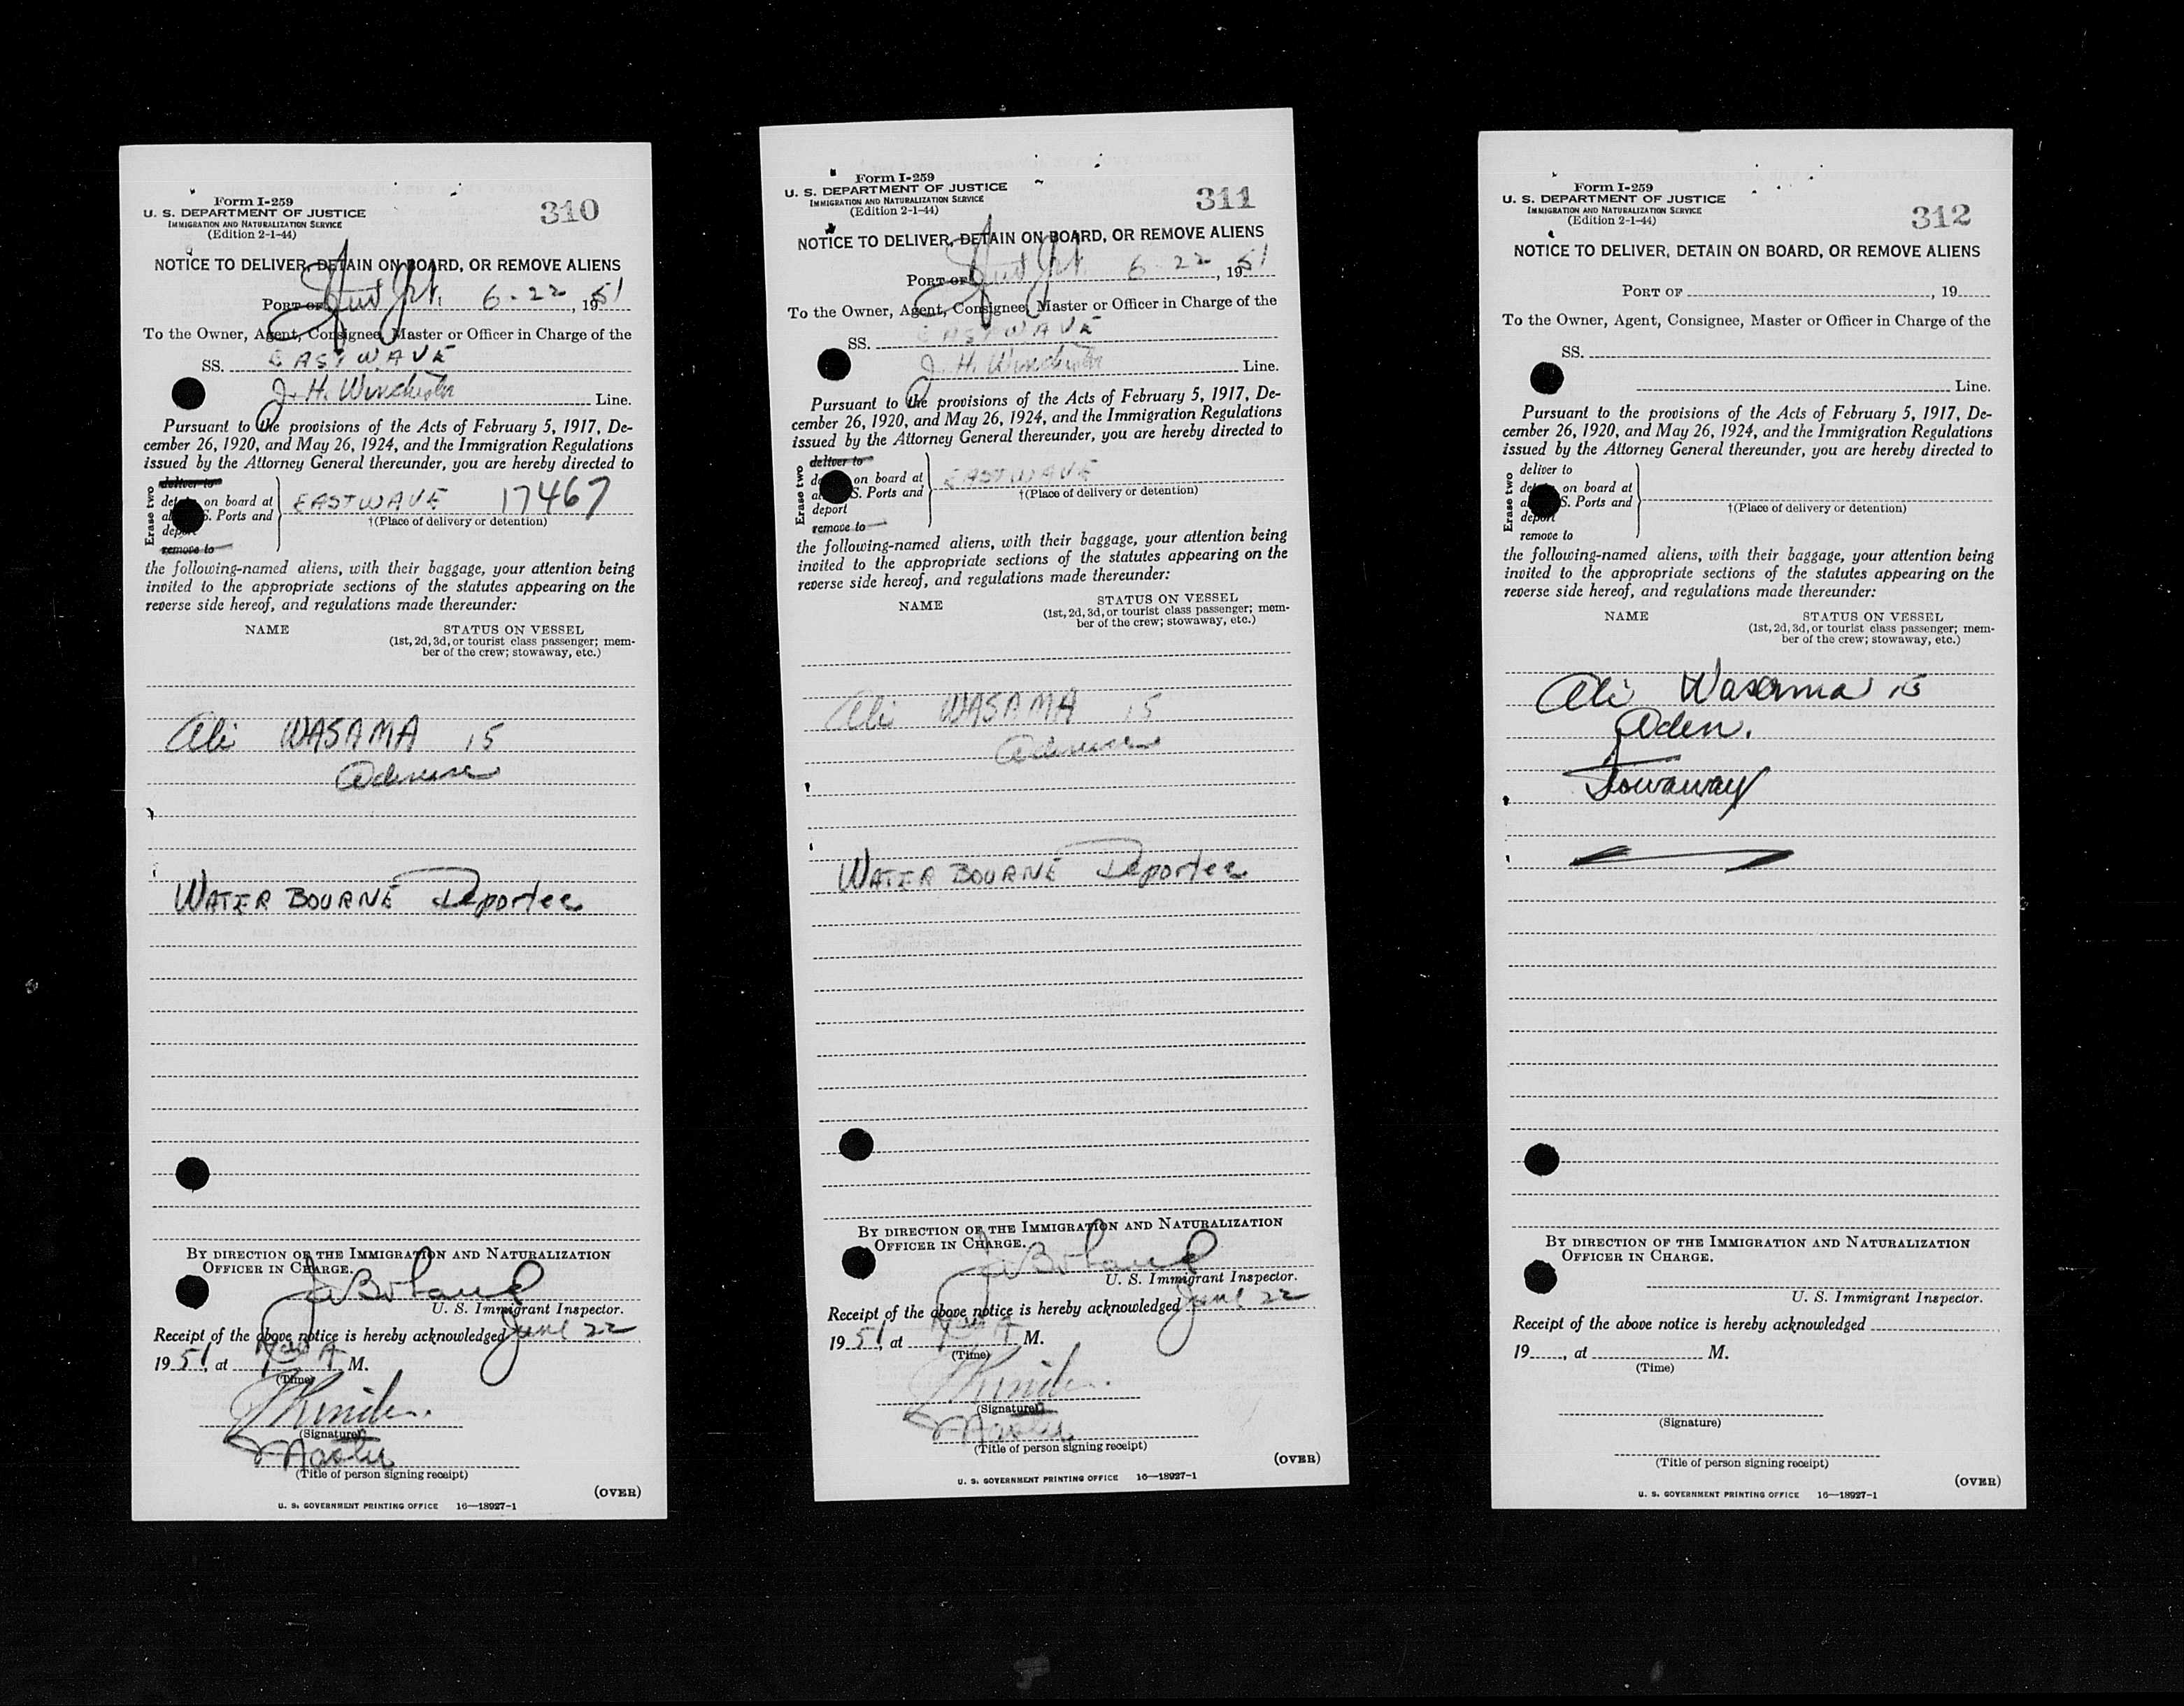 Form I-259
U. S. DEPARTMENT OF JUSTICE
IMMIGRATION AND NATURALIZATION SERVICE
(Edition 2-1-44)
310
NOTICE TO DELIVER, DETAIN ON BOARD, OR REMOVE ALIENS
PORT OF 6-22, 1951
To the Owner, Agent, Consignee, Master or Officer in Charge of the
SS. EASTWAVE
J. H. Winchester Line.
Pursuant to the provisions of the Acts of February 5, 1917, De-
cember 26, 1920, and May 26, 1924, and the Immigration Regulations
issued by the Attorney General thereunder, you are hereby directed to
Erase two
deliver to
on board at
S. Ports and
remove to
EASTWAVE 17467
†(Place of delivery or detention)
the following-named aliens, with their baggage, your attention being
invited to the appropriate sections of the statutes appearing on the
reverse side hereof, and regulations made thereunder:
NAME STATUS ON VESSEL
(1st, 2d, 3d, or tourist class passenger; mem-
ber of the crew; stowaway, etc.)
Ali WASAMA 15
WATER BOURNE Deportee
BY DIRECTION OF THE IMMIGRATION AND NATURALIZATION
OFFICER IN CHARGE.
U. S. Immigrant Inspector.
Receipt of the above notice is hereby acknowledged June 22
1951, at A M.
(Time)
(Signature)
Master
(Title of person signing receipt)
(OVER)
U. S. GOVERNMENT PRINTING OFFICE 16—18927-1
Form I-259
U. S. DEPARTMENT OF JUSTICE
IMMIGRATION AND NATURALIZATION SERVICE
(Edition 2-1-44)
311
NOTICE TO DELIVER, DETAIN ON BOARD, OR REMOVE ALIENS
PORT OF 6-22, 1951
To the Owner, Agent, Consignee, Master or Officer in Charge of the
SS. EASTWAVE
J. H. Winchester Line.
Pursuant to the provisions of the Acts of February 5, 1917, De-
cember 26, 1920, and May 26, 1924, and the Immigration Regulations
issued by the Attorney General thereunder, you are hereby directed to
Erase two
deliver to
on board at
S. Ports and
deport
remove to
EASTWAVE
†(Place of delivery or detention)
the following-named aliens, with their baggage, your attention being
invited to the appropriate sections of the statutes appearing on the
reverse side hereof, and regulations made thereunder:
NAME STATUS ON VESSEL
(1st, 2d, 3d, or tourist class passenger; mem-
ber of the crew; stowaway, etc.)
Ali WASAMA 15
WATER BOURNE Deportee
BY DIRECTION OF THE IMMIGRATION AND NATURALIZATION
OFFICER IN CHARGE.
U. S. Immigrant Inspector.
Receipt of the above notice is hereby acknowledged June 22
1951, at A M.
(Time)
(Signature)
Master
(Title of person signing receipt)
(OVER)
U. S. GOVERNMENT PRINTING OFFICE 16—18927-1
Form I-259
U. S. DEPARTMENT OF JUSTICE
IMMIGRATION AND NATURALIZATION SERVICE
(Edition 2-1-44)
312
NOTICE TO DELIVER, DETAIN ON BOARD, OR REMOVE ALIENS
PORT OF , 19
To the Owner, Agent, Consignee, Master or Officer in Charge of the
SS.
Line.
Pursuant to the provisions of the Acts of February 5, 1917, De-
cember 26, 1920, and May 26, 1924, and the Immigration Regulations
issued by the Attorney General thereunder, you are hereby directed to
Erase two
deliver to
on board at
S. Ports and
deport
remove to
†(Place of delivery or detention)
the following-named aliens, with their baggage, your attention being
invited to the appropriate sections of the statutes appearing on the
reverse side hereof, and regulations made thereunder:
NAME STATUS ON VESSEL
(1st, 2d, 3d, or tourist class passenger; mem-
ber of the crew; stowaway, etc.)
Ali Wasama 15
Aden.
Stowaway
BY DIRECTION OF THE IMMIGRATION AND NATURALIZATION
OFFICER IN CHARGE.
U. S. Immigrant Inspector.
Receipt of the above notice is hereby acknowledged
19 , at M.
(Time)
(Signature)
(Title of person signing receipt)
(OVER)
U. S. GOVERNMENT PRINTING OFFICE 16—18927-1